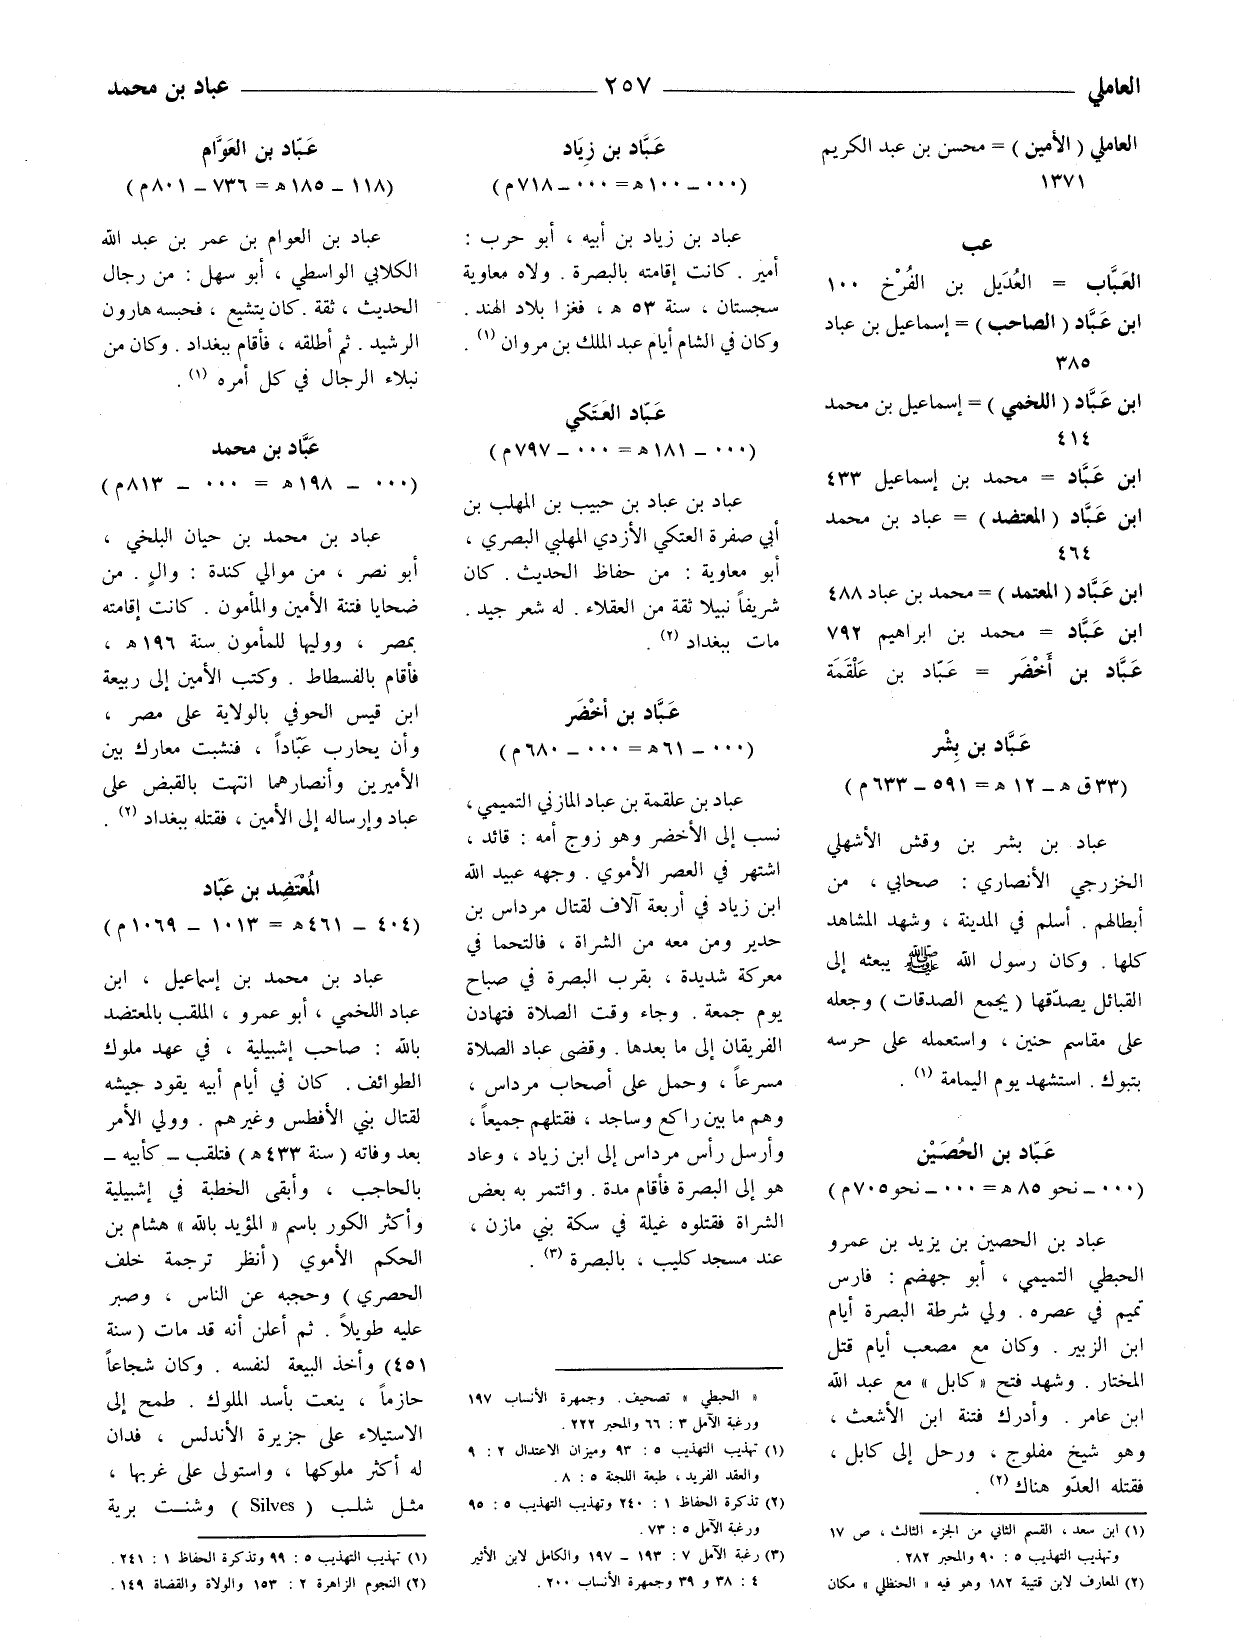 العاملي ٢٥٧ عباد بن محمد
العاملي ( الأمين ) = محسن بن عبد الكريم
١٣٧١
عب
العَبَّاب = العُدَيل بن الفُرْخ ١٠٠
ابن عَبَّاد ( الصاحب ) = إسماعيل بن عباد
٣٨٥
ابن عَبَّاد ( اللخمي ) = إسماعيل بن محمد
٤١٤
ابن عَبَّاد = محمد بن إسماعيل ٤٣٣
ابن عَبَّاد ( المعتضد ) = عباد بن محمد
٤٦٤
ابن عَبَّاد ( المعتمد ) = محمد بن عباد ٤٨٨
ابن عَبَّاد = محمد بن ابراهيم ٧٩٢
عَبَّاد بن أَخْضَر = عَبّاد بن عَلْقَمَة
عَبَّاد بن بِشْر
(٣٣ ق هـ – ١٢ هـ = ٥٩١ – ٦٣٣ م )
عباد بن بشر بن وقش الأشهلي
الخزرجي الأنصاري : صحابي ، من
أبطالهم . أسلم في المدينة ، وشهد المشاهد
كلها . وكان رسول الله ﷺ يبعثه إلى
القبائل يصدّقها ( يجمع الصدقات ) وجعله
على مقاسم حنين ، واستعمله على حرسه
بتبوك . استشهد يوم اليمامة (١) .
عَبّاد بن الحُصَيْن
(٠٠٠ – نحو ٨٥ هـ = ٠٠٠ – نحو ٧٠٥ م )
عباد بن الحصين بن يزيد بن عمرو
الحبطي التميمي ، أبو جهضم : فارس
تميم في عصره . ولي شرطة البصرة أيام
ابن الزبير . وكان مع مصعب أيام قتل
المختار . وشهد فتح « كابل » مع عبد الله
ابن عامر . وأدرك فتنة ابن الأشعث ،
وهو شيخ مفلوج ، ورحل إلى كابل ،
فقتله العدّو هناك (٢) .
(١) ابن سعد ، القسم الثاني من الجزء الثالث ، ص ١٧
وتهذيب التهذيب ٥ : ٩٠ والمحبر ٢٨٢ .
(٢) المعارف لابن قتيبة ١٨٢ وهو فيه « الحنظلي » مكان
عَبَّاد بن زِيَاد
(٠٠٠ – ١٠٠ هـ = ٠٠٠ – ٧١٨ م )
عباد بن زياد بن أبيه ، أبو حرب :
أمير . كانت إقامته بالبصرة . ولاه معاوية
سجستان ، سنة ٥٣ هـ ، فغزا بلاد الهند .
وكان في الشام أيام عبد الملك بن مروان (١) .
عَبّاد العَتَكي
(٠٠٠ – ١٨١ هـ = ٠٠٠ – ٧٩٧ م )
عباد بن عباد بن حبيب بن المهلب بن
أبي صفرة العتكي الأزدي المهلبي البصري ،
أبو معاوية : من حفاظ الحديث . كان
شريفاً نبيلا ثقة من العقلاء . له شعر جيد .
مات ببغداد (٢) .
عَبَّاد بن أخْضَر
(٠٠٠ – ٦١ هـ = ٠٠٠ – ٦٨٠ م )
عباد بن علقمة بن عباد المازني التميمي ،
نسب إلى الأخضر وهو زوج أمه : قائد ،
اشتهر في العصر الأموي . وجهه عبيد الله
ابن زياد في أربعة آلاف لقتال مرداس بن
حدير ومن معه من الشراة ، فالتحما في
معركة شديدة ، بقرب البصرة في صباح
يوم جمعة . وجاء وقت الصلاة فتهادن
الفريقان إلى ما بعدها . وقضى عباد الصلاة
مسرعاً ، وحمل على أصحاب مرداس ،
وهم ما بين راكع وساجد ، فقتلهم جميعاً ،
وأرسل رأس مرداس إلى ابن زياد ، وعاد
هو إلى البصرة فأقام مدة . وائتمر به بعض
الشراة فقتلوه غيلة في سكة بني مازن ،
عند مسجد كليب ، بالبصرة (٣) .
« الحبطي » تصحيف . وجمهرة الأنساب ١٩٧
ورغبة الآمل ٣ : ٦٦ والمحبر ٢٢٢ .
(١) تهذيب التهذيب ٥ : ٩٣ وميزان الاعتدال ٢ : ٩
والعقد الفريد ، طبعة اللجنة ٥ : ٨ .
(٢) تذكرة الحفاظ ١ : ٢٤٠ وتهذيب التهذيب ٥ : ٩٥
ورغبة الآمل ٥ : ٧٣ .
(٣) رغبة الآمل ٧ : ١٩٣ – ١٩٧ والكامل لابن الأثير
٤ : ٣٨ و ٣٩ وجمهرة الأنساب ٢٠٠ .
عَبّاد بن العَوَّام
(١١٨ – ١٨٥ هـ = ٧٣٦ – ٨٠١ م )
عباد بن العوام بن عمر بن عبد الله
الكلابي الواسطي ، أبو سهل : من رجال
الحديث ، ثقة . كان يتشيع ، فحبسه هارون
الرشيد . ثم أطلقه ، فأقام ببغداد . وكان من
نبلاء الرجال في كل أمره (١) .
عَبَّاد بن محمد
(٠٠٠ – ١٩٨ هـ = ٠٠٠ – ٨١٣ م )
عباد بن محمد بن حيان البلخي ،
أبو نصر ، من موالي كندة : والٍ . من
ضحايا فتنة الأمين والمأمون . كانت إقامته
بمصر ، ووليها للمأمون سنة ١٩٦ هـ ،
فأقام بالفسطاط . وكتب الأمين إلى ربيعة
ابن قيس الحوفي بالولاية على مصر ،
وأن يحارب عبّاداً ، فنشبت معارك بين
الأميرين وأنصارهما انتهت بالقبض على
عباد وإرساله إلى الأمين ، فقتله ببغداد (٢) .
المُعْتَضِد بن عَبّاد
(٤٠٤ – ٤٦١ هـ = ١٠١٣ – ١٠٦٩ م )
عباد بن محمد بن إسماعيل ، ابن
عباد اللخمي ، أبو عمرو ، الملقب بالمعتضد
بالله : صاحب إشبيلية ، في عهد ملوك
الطوائف . كان في أيام أبيه يقود جيشه
لقتال بني الأفطس وغيرهم . وولي الأمر
بعد وفاته ( سنة ٤٣٣ هـ ) فتلقب – كأبيه –
بالحاجب ، وأبقى الخطبة في إشبيلية
وأكثر الكور باسم « المؤيد بالله » هشام بن
الحكم الأموي ( أنظر ترجمة خلف
الحصري ) وحجبه عن الناس ، وصبر
عليه طويلاً . ثم أعلن أنه قد مات ( سنة
٤٥١) وأخذ البيعة لنفسه . وكان شجاعاً
حازماً ، ينعت بأسد الملوك . طمح إلى
الاستيلاء على جزيرة الأندلس ، فدان
له أكثر ملوكها ، واستولى على غربها ،
مثل شلب ( Silves ) وشنت برية
(١) تهذيب التهذيب ٥ : ٩٩ وتذكرة الحفاظ ١ : ٢٤١ .
(٢) النجوم الزاهرة ٢ : ١٥٣ والولاة والقضاة ١٤٩ .